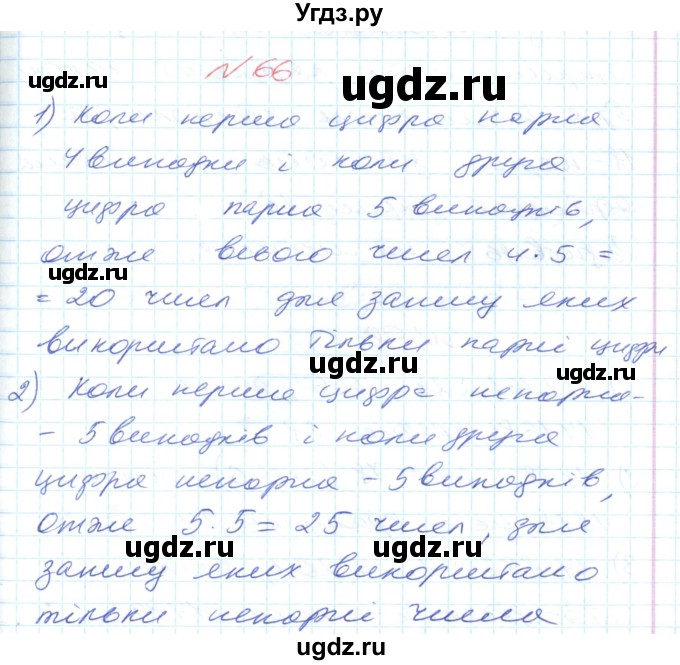 Угдз.ру
№ 66
ugdz.ru
ugdz.ru
ugdz.ru
1) Коли перша цифра парна
4 випадки і коли друга
ugdz.ru
ugdz.ru
цифра парна 5 випадків,
отже всього чисел 4·5 =
ugdz.ru
= 20 чисел для запису яких
використано тільки парні цифри
ugdz.ru
ugdz.ru
2) Коли перша цифра непарна-
- 5 випадків і коли друга
ugdz.ru
цифра непарна - 5 випадків,
отже 5·5 = 25 чисел, для
ugdz.ru
ugdz.ru
запису яких використано
тільки непарні числа
ugdz.ru